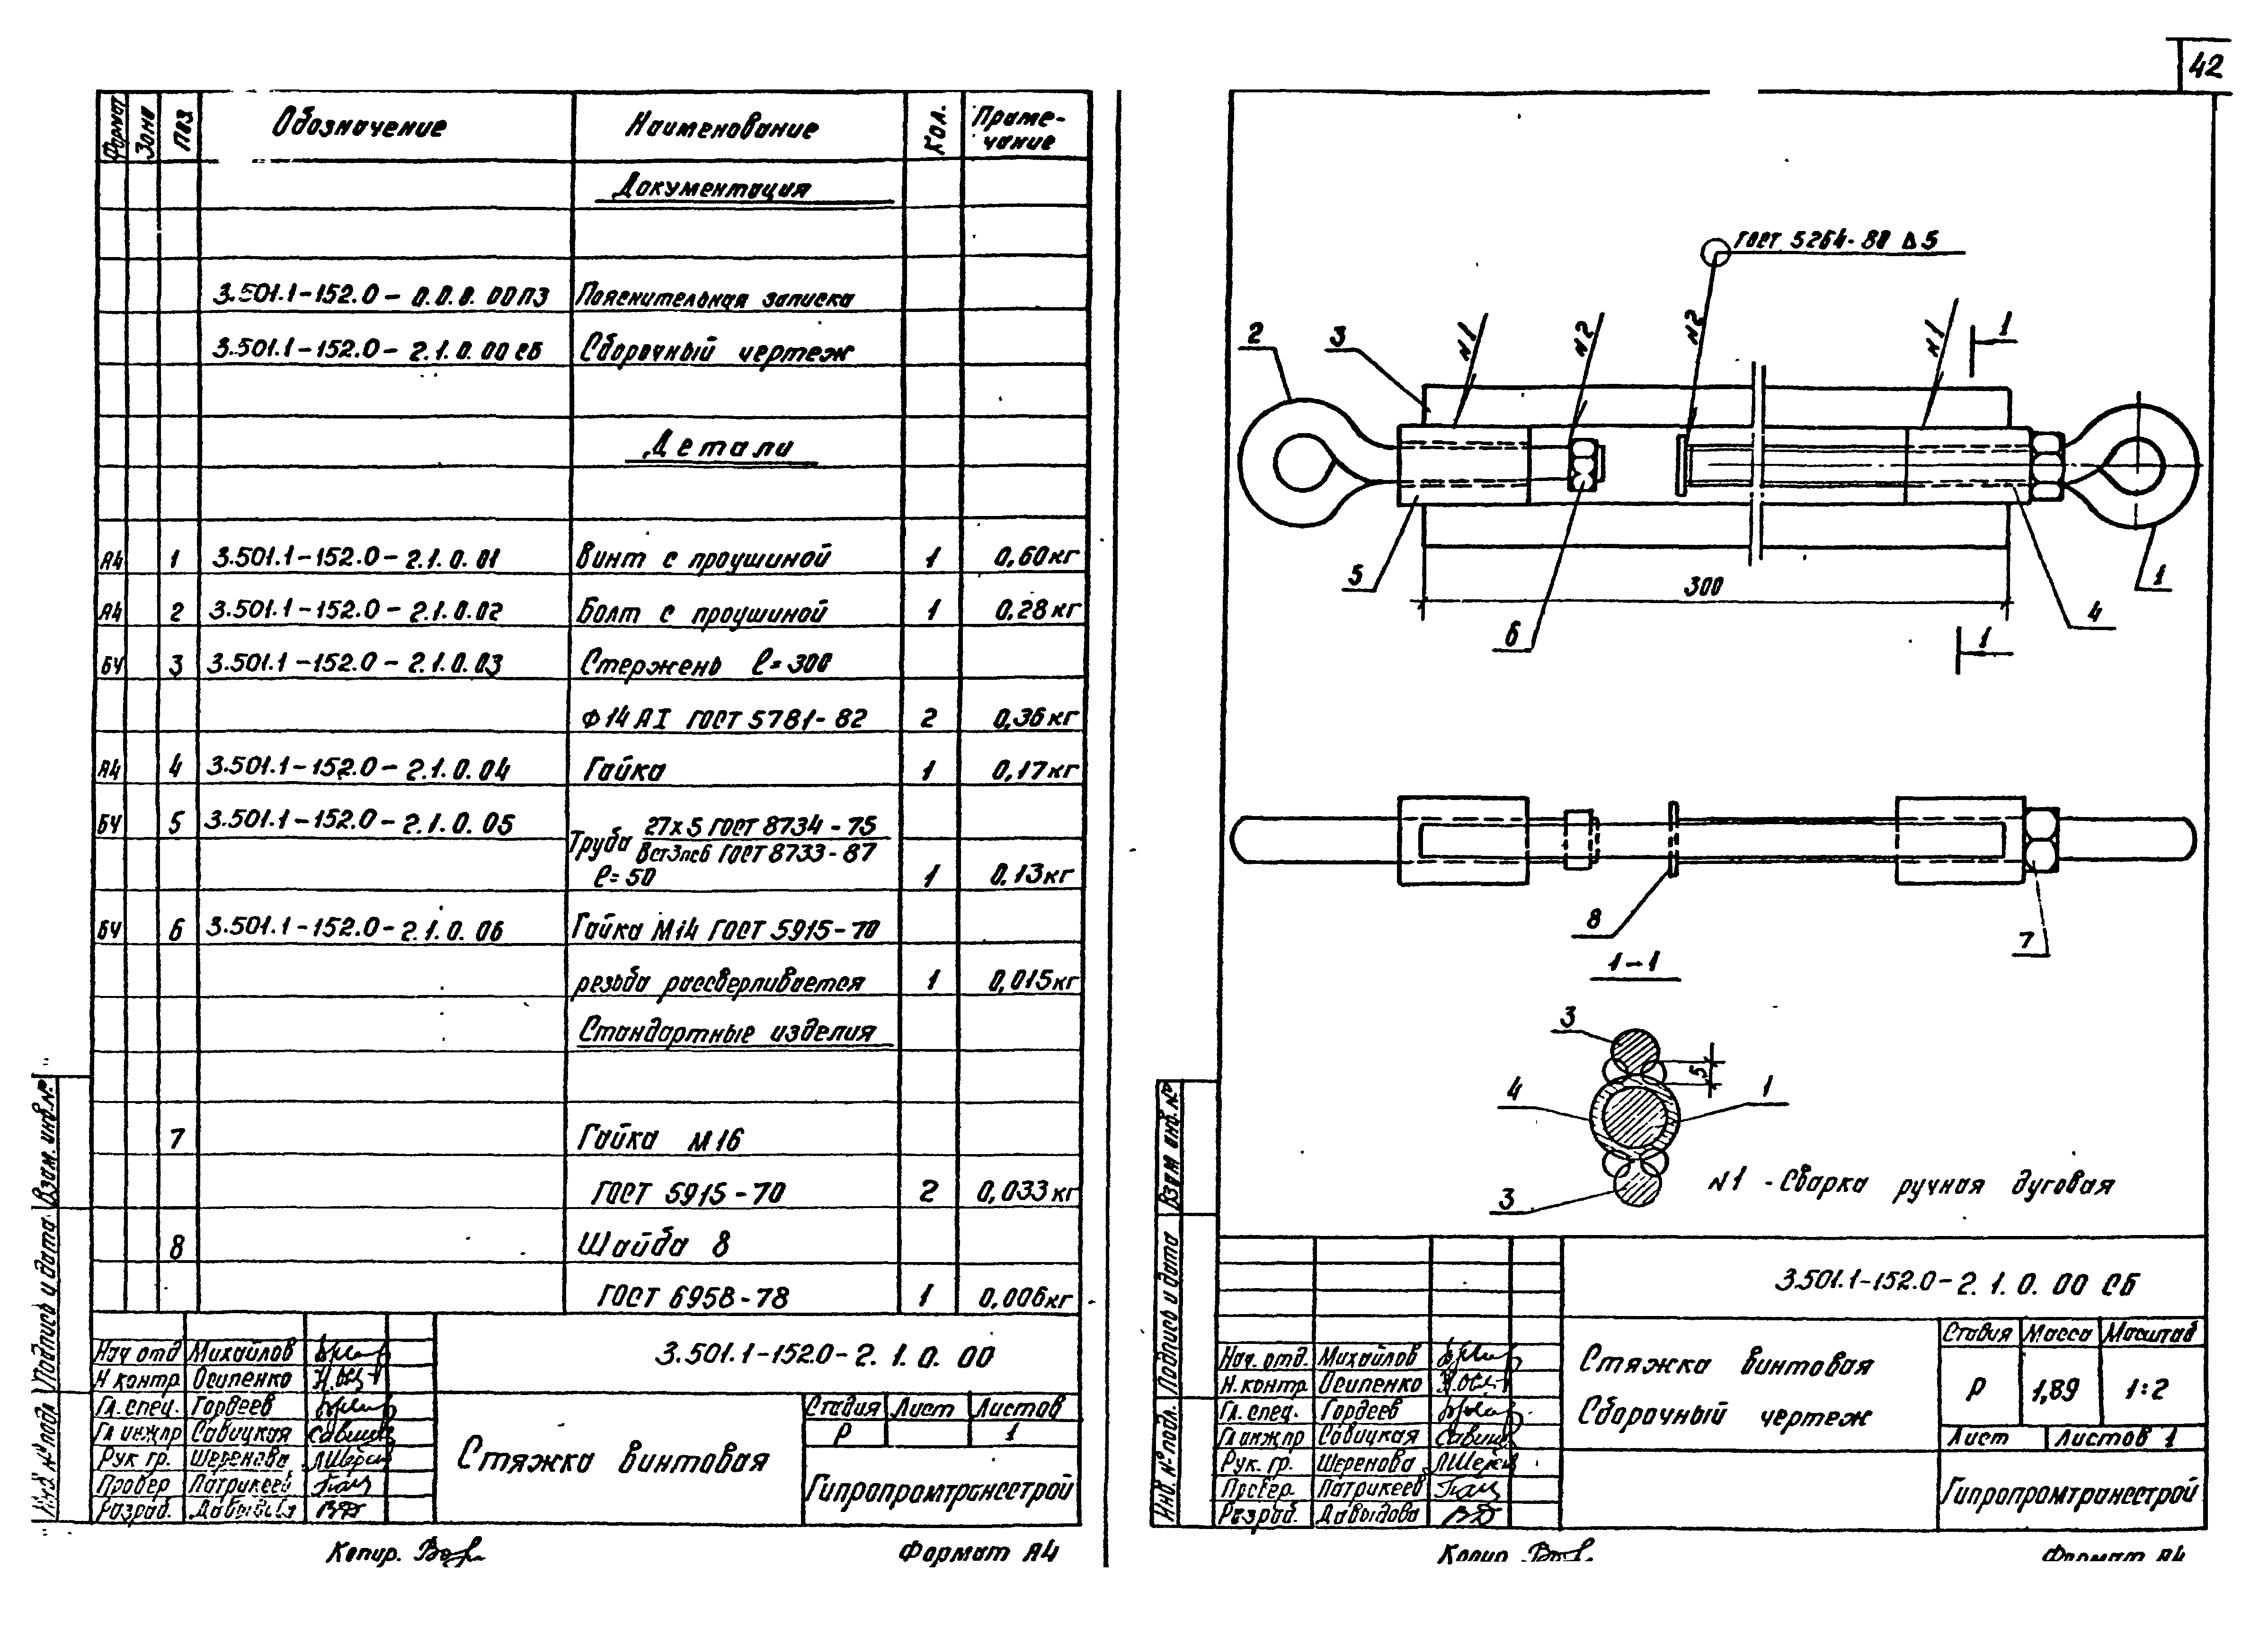 42
Формат Зона Поз Обозначение Наименование Кол. Приме-
чание
Документация
3.501.1-152.0-0.0.0.00ПЗ Пояснительная записка
3.501.1-152.0-2.1.0.00СБ Сборочный чертеж
Детали
А4 1 3.501.1-152.0-2.1.0.01 Винт с проушиной 1 0,60кг
А4 2 3.501.1-152.0-2.1.0.02 Болт с проушиной 1 0,28кг
БЧ 3 3.501.1-152.0-2.1.0.03 Стержень ℓ=300
Ф14 АI ГОСТ 5781-82 2 0,36кг
А4 4 3.501.1-152.0-2.1.0.04 Гайка 1 0,17кг
БЧ 5 3.501.1-152.0-2.1.0.05 Труба 27х5 ГОСТ 8734-75
Вст3пс6 ГОСТ 8733-87
ℓ=50 1 0,13кг
БЧ 6 3.501.1-152.0-2.1.0.06 Гайка М14 ГОСТ 5915-70
резьба рассверливается 1 0,015кг
Стандартные изделия
7 Гайка М16
ГОСТ 5915-70 2 0,033кг
8 Шайба 8
ГОСТ 6958-78 1 0,006кг
Взам. инв.№
Подпись и дата
Инв.№ подл.
3.501.1-152.0-2.1.0.00
Нач отд Михайлов
Н контр Осипенко
Гл.спец. Гордеев
Гл инжпр Савицкая
Рук гр. Шеренова
Провер Патрикеев
Разраб. Давыдова
Стяжка винтовая
Стадия Лист Листов
Р 1
Гипропромтрансстрой
Копир.
Формат А4
ГОСТ 5264-80 Δ5
2 3 №1 №2 №2 №1 1
5 300 1
6 4
1
8 7
1-1
3
5
4 1
3
№1 - Сварка ручная дуговая
Взам инв.№
Подпись и дата
Инв.№ подл.
3.501.1-152.0-2.1.0.00 СБ
Нач. отд. Михайлов
Н.контр Осипенко
Гл. спец. Гордеев
Гл инж пр Савицкая
Рук. гр. Шеренова
Провер. Патрикеев
Разраб. Давыдова
Стяжка винтовая
Сборочный чертеж
Стадия Масса Масштаб
Р 1,89 1:2
Лист Листов 1
Гипропромтрансстрой
Копир
Формат А4